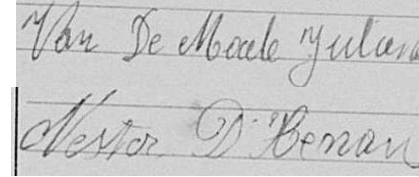 Van De Moele Julian
Nestor D'Henan